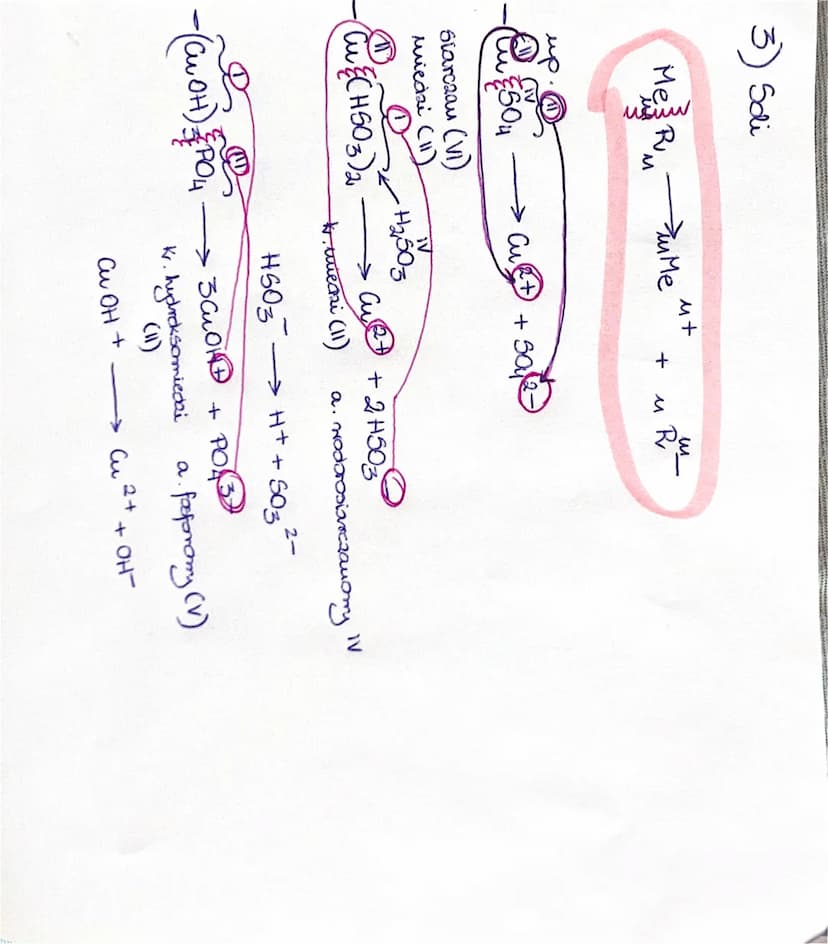 3) Soli
MemRn → mMe n+ + n R m-
np. II IV II
- CuSO4 → Cu2+ + SO4 2-
siarczan (VI)
miedzi (II)
II I H2SO3 IV
- Cu(HSO3)2 → Cu2+ + 2HSO3-
kr. miedzi (II) a. wodorosiarczanowy IV
HSO3- → H+ + SO3 2-
I III
- (CuOH)3PO4 → 3CuOH+ + PO4 3-
kr. hydroksomiedzi a. fosforanowy (V)
(II)
CuOH+ → Cu2+ + OH-